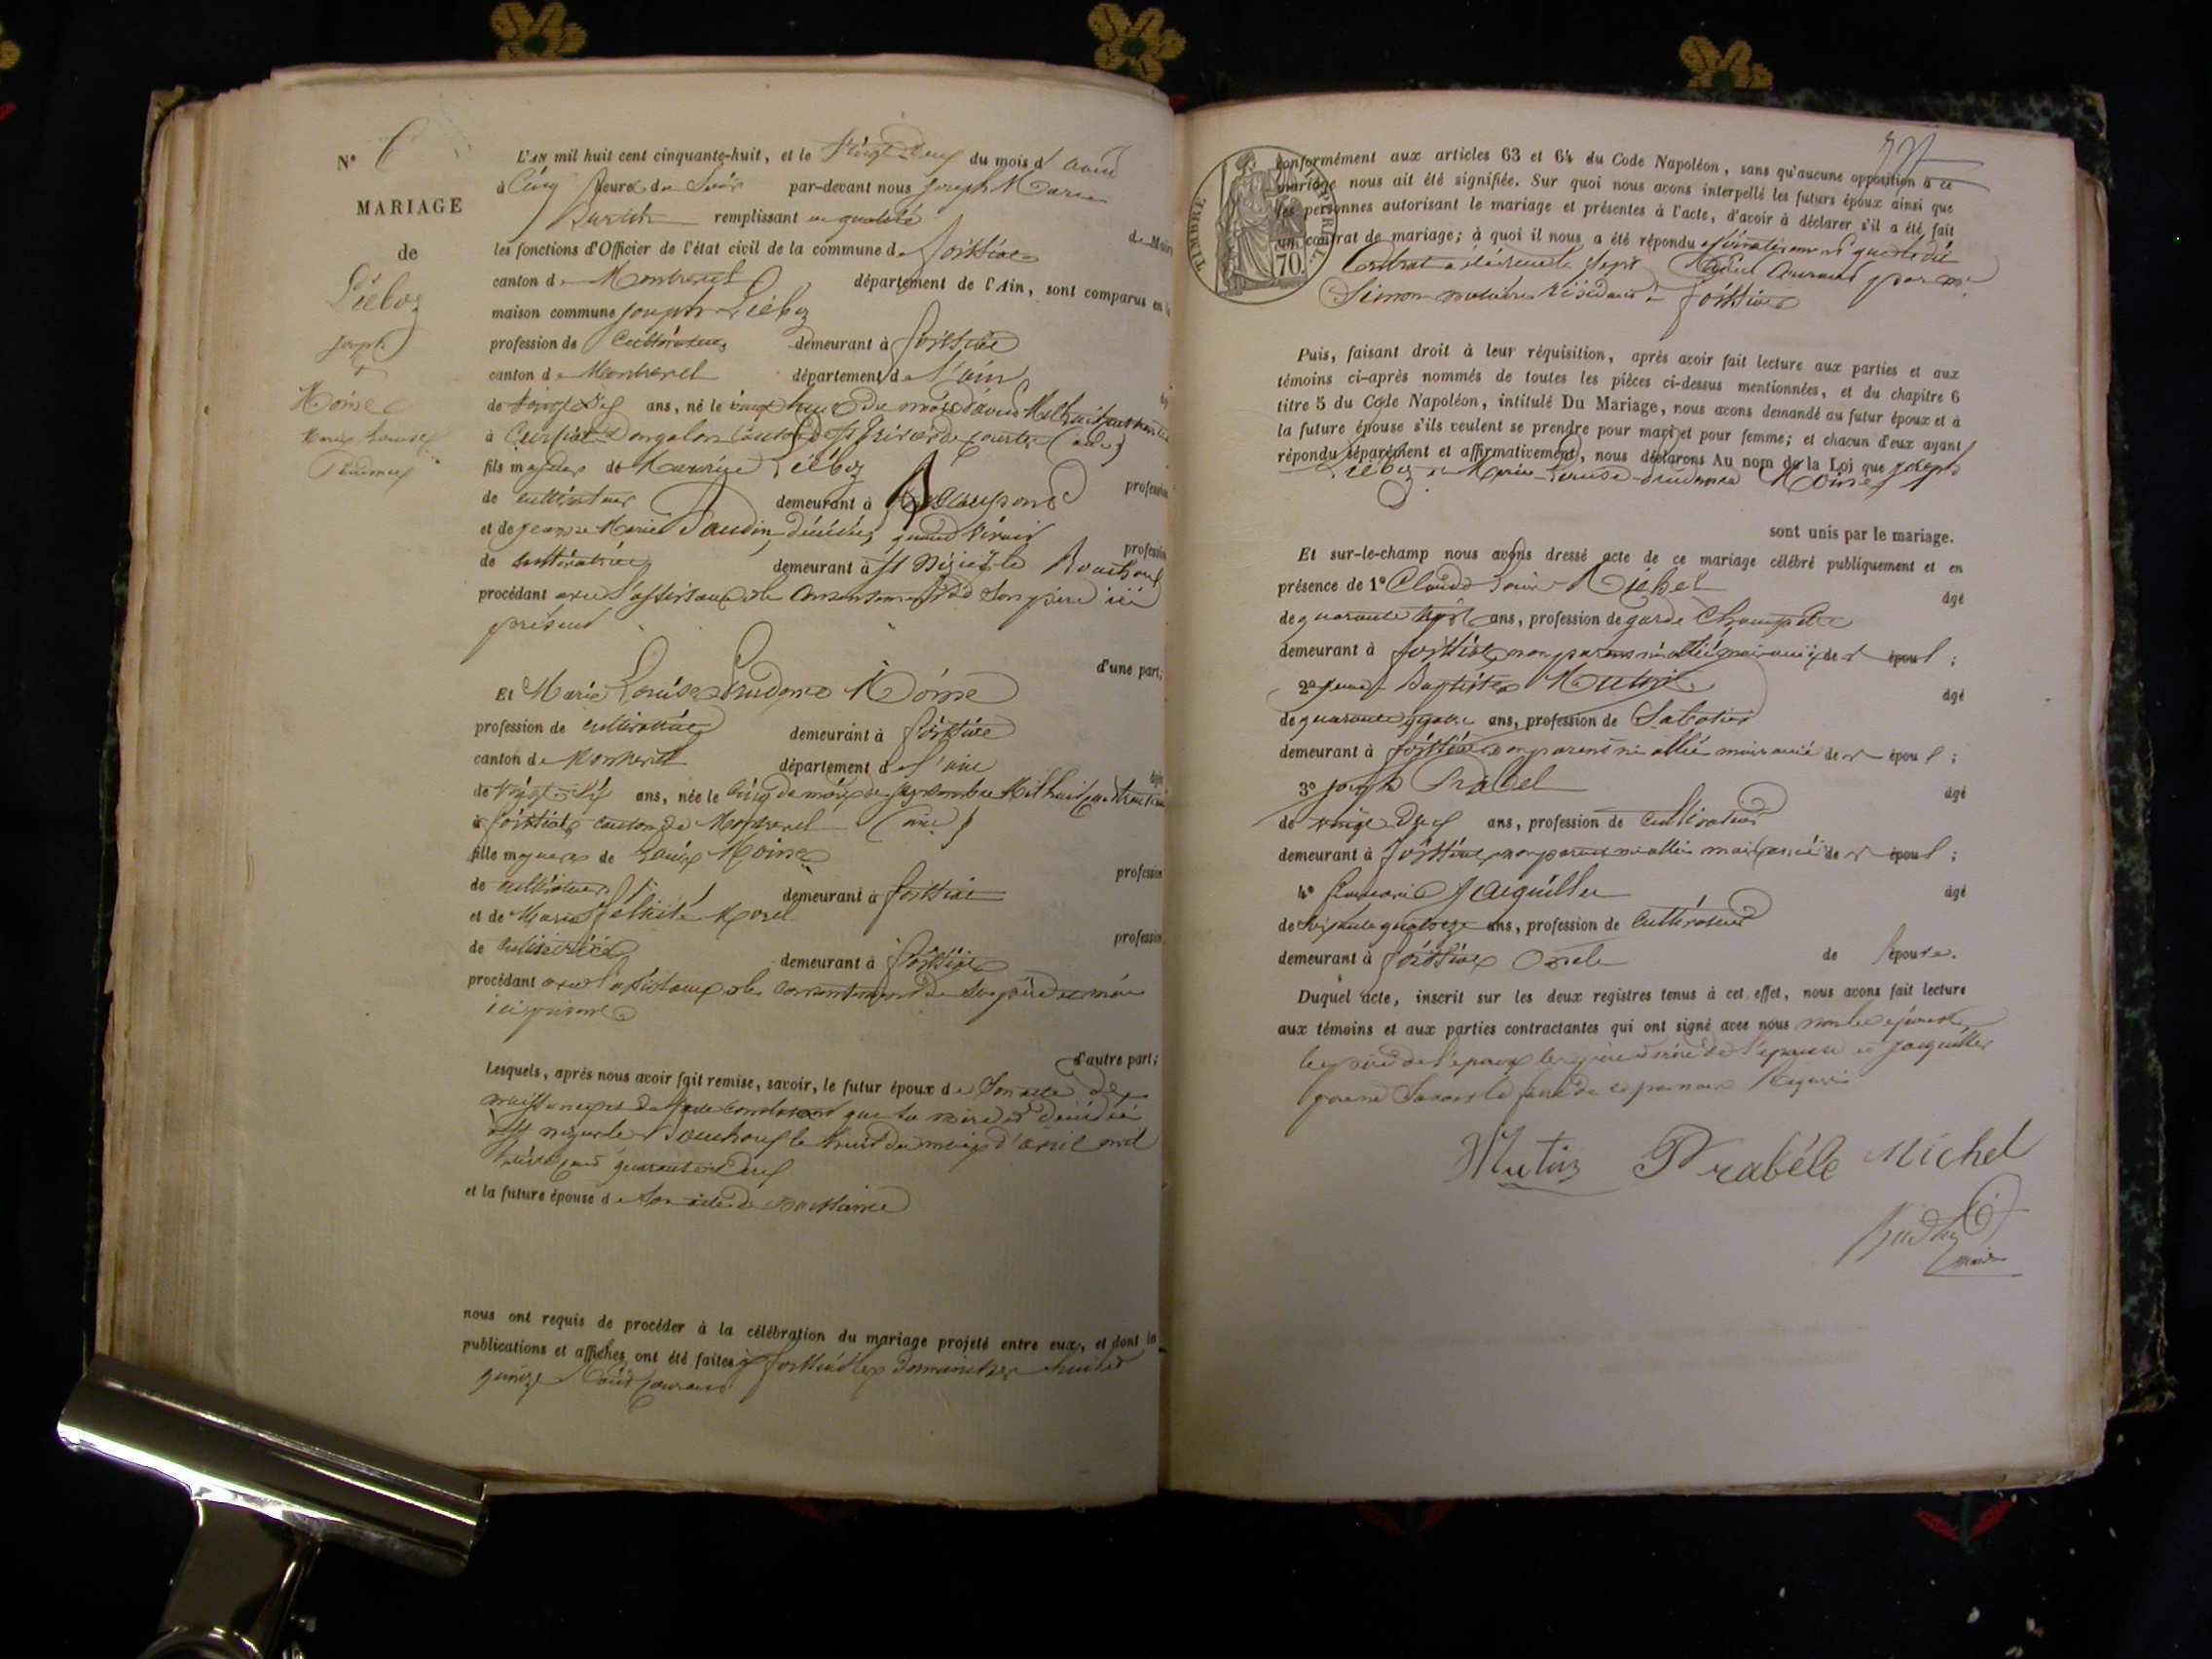 N° 6
MARIAGE
de
Piéboz
Joseph
et
Moine
Marie Louise
Prudence
L'AN mil huit cent cinquante-huit, et le vingt deux du mois d'août
à cinq heures du soir par-devant nous Joseph Marie
remplissant en qualité de Maire
les fonctions d'Officier de l'état civil de la commune de foissiat
canton de Montrevel département de l'Ain, sont comparus en la
maison commune Joseph Piéboz
profession de cultivateur demeurant à foissiat
canton de Montrevel département de l'ain âgé
de vingt six ans, né le du mois d'avril mil huit cent
à Curciat Dongalon canton de St Trivier de courtes (ain)
fils majeur de Maurice Piéboz profession
de cultivateur demeurant à Beaupont
et de Jeanne Marie Paudin décédée, quand vivait profession
de cultivatrice demeurant à St Nizier le Bouchoux
procédant avec l'assistance et le consentement de son père ici
présent
d'une part;
Et Marie Louise Prudence Moine
profession de cultivatrice demeurant à foissiat
canton de Montrevel département de l'ain âgée
de vingt six ans, née le cinq du mois de septembre mil huit cent
à foissiat canton de Montrevel (ain)
fille majeure de Moine profession
de cultivateur demeurant à foissiat
et de Marie félicité Morel profession
de cultivatrice demeurant à foissiat
procédant avec l'assistance et le consentement de ses père et mère
ici présents
d'autre part;
Lesquels, après nous avoir fait remise, savoir, le futur époux de son acte de
naissance et de l'acte constatant que sa mère est décédée
à St nizier le Bouchoux le huit du mois d'avril mil
huit cent quarante deux
et la future épouse de son acte de naissance
nous ont requis de procéder à la célébration du mariage projeté entre eux, et dont les
publications et affiches ont été faites à foissiat les dimanches huit et
quinze août courant
TIMBRE IMPÉRIAL
70
conformément aux articles 63 et 64 du Code Napoléon, sans qu'aucune opposition à ce
mariage nous ait été signifiée. Sur quoi nous avons interpellé les futurs époux ainsi que
les personnes autorisant le mariage et présentes à l'acte, d'avoir à déclarer s'il a été fait
un contrat de mariage; à quoi il nous a été répondu affirmativement que le dit
Contrat a été reçu le sept du courant par me
Simon notaire résidant à foissiat
Puis, faisant droit à leur réquisition, après avoir fait lecture aux parties et aux
témoins ci-après nommés de toutes les pièces ci-dessus mentionnées, et du chapitre 6
titre 5 du Code Napoléon, intitulé Du Mariage, nous avons demandé au futur époux et à
la future épouse s'ils veulent se prendre pour mari et pour femme; et chacun d'eux ayant
répondu séparément et affirmativement, nous déclarons Au nom de la Loi que Joseph
Piéboz et Marie Louise Prudence Moine
sont unis par le mariage.
Et sur-le-champ nous avons dressé acte de ce mariage célébré publiquement et en
présence de 1° Claude Louis Michel âgé
de quarante sept ans, profession de garde Champêtre
demeurant à foissiat, non parent ni allié mais ami de l'époux;
2° Jean Baptiste Mutin âgé
de quarante quatre ans, profession de Sabotier
demeurant à foissiat non parent ni allié mais ami de l'époux;
3° Joseph Prabel âgé
de vingt deux ans, profession de cultivateur
demeurant à foissiat, non parent ni allié mais ami de l'époux;
4° Jacquiller âgé
de soixante quatorze ans, profession de cultivateur
demeurant à foissiat oncle de l'épouse.
Duquel acte, inscrit sur les deux registres tenus à cet effet, nous avons fait lecture
aux témoins et aux parties contractantes qui ont signé avec nous non les époux,
le père de l'époux les père et mère de l'épouse et Jacquiller
pour ne savoir le faire de ce par nous requis
Mutin Prabéle Michel
maire